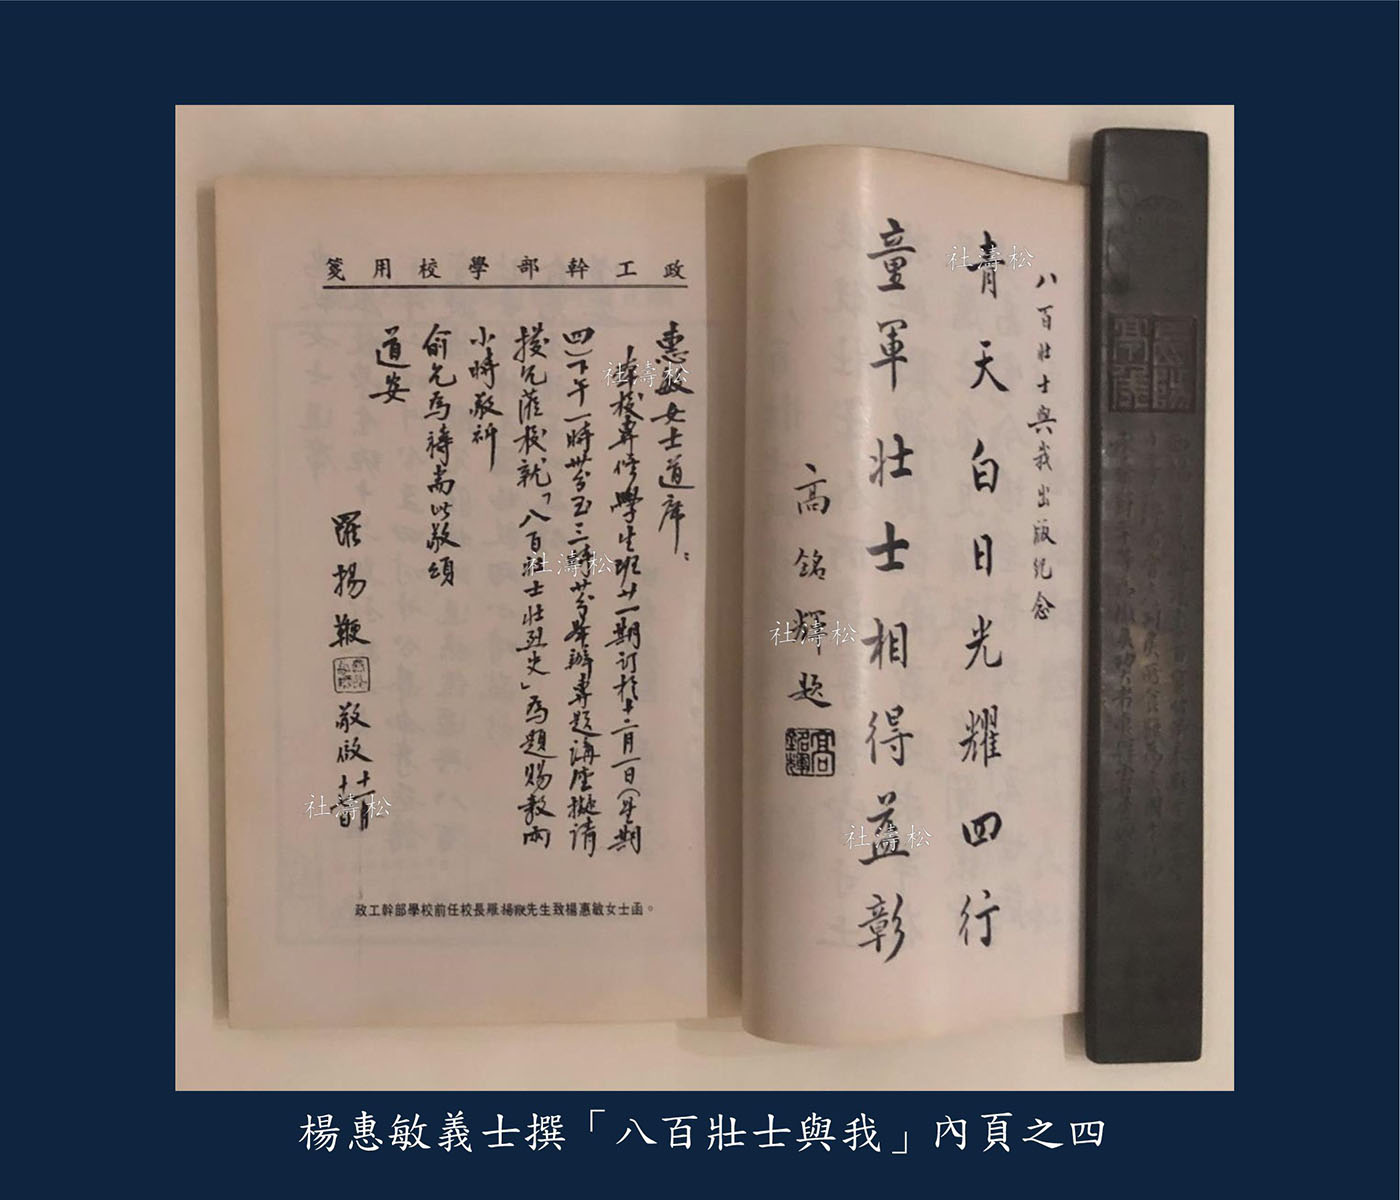 八百壯士與我出版紀念
青天白日光耀四行
童軍壯士相得益彰
高銘輝題
高銘輝
政工幹部學校用箋
惠敏女士道席：
本校專修學生班廿一期訂於十二月一日（星期
四）下午一時廿分至三時廿分舉辦專題講座擬請
撥冗蒞校就「八百壯士壯烈史」為題賜教兩
小時敬祈
俞允為禱耑此敬頌
道安
羅揚鞭
敬啟
十一月
政工幹部學校前任校長羅揚鞭先生致楊惠敏女士函。
松濤社
松濤社
松濤社
松濤社
松濤社
松濤社
楊惠敏義士撰「八百壯士與我」內頁之四